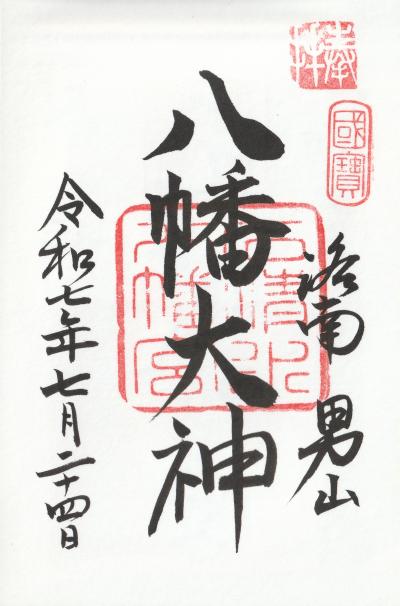 奉拝
國寶
洛南 男山
八幡大神
石清水八幡宮
令和七年七月二十四日